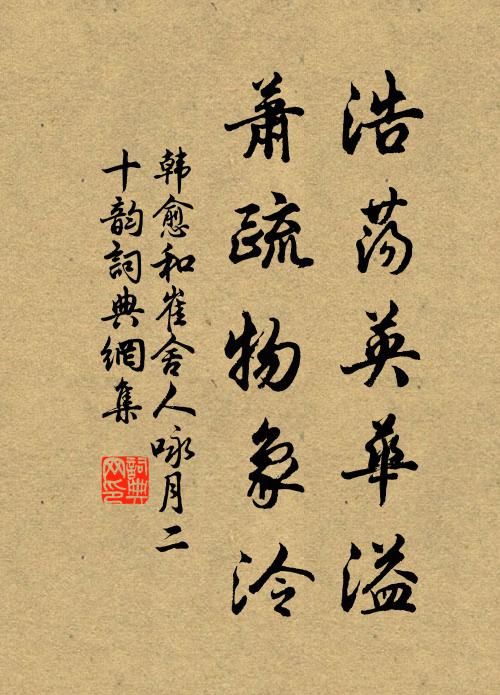 浩荡英華溢
蕭疏物象泠
韩愈和崔舍人咏月二
十韵詞典網集
詞典
网印